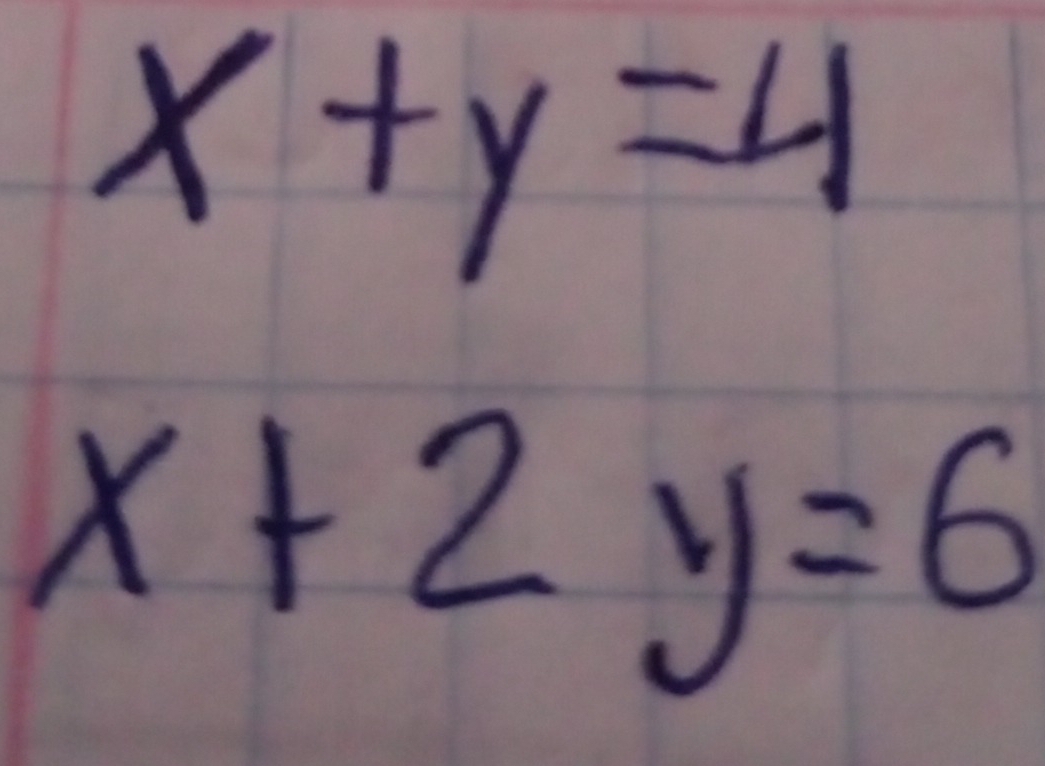 x + y = 4
x + 2 y = 6